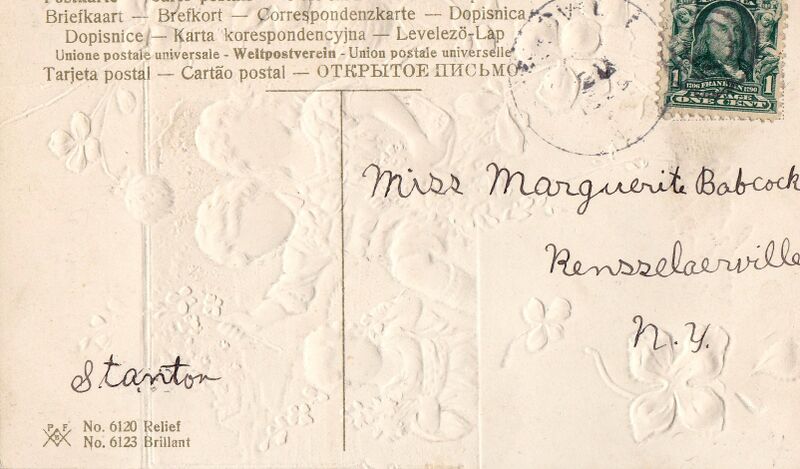 Briefkaart — Brefkort — Correspondenzkarte — Dopisnica
Dopisnice — Karta korespondencyjna — Levelező-Lap
Unione postale universale - Weltpostverein - Union postale universelle
Tarjeta postal — Cartão postal — ОТКРЫТОЕ ПИСЬМО
1 1706 FRANKLIN 1790 1
POSTAGE
ONE CENT
Miss Marguerite Babcock
Rensselaerville
N.Y.
Stanton
P F B
No. 6120 Relief
No. 6123 Brillant